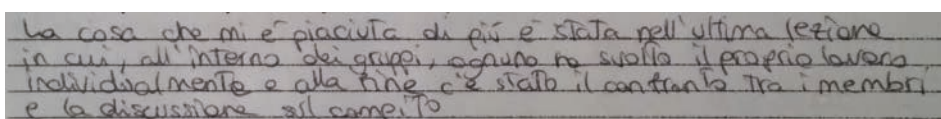 La cosa che mi è piaciuta di più è stata nell'ultima lezione
in cui, all'interno dei gruppi, ognuno ha svolto il proprio lavoro
individualmente e alla fine c'è stato il confronto tra i membri
e la discussione sul compito